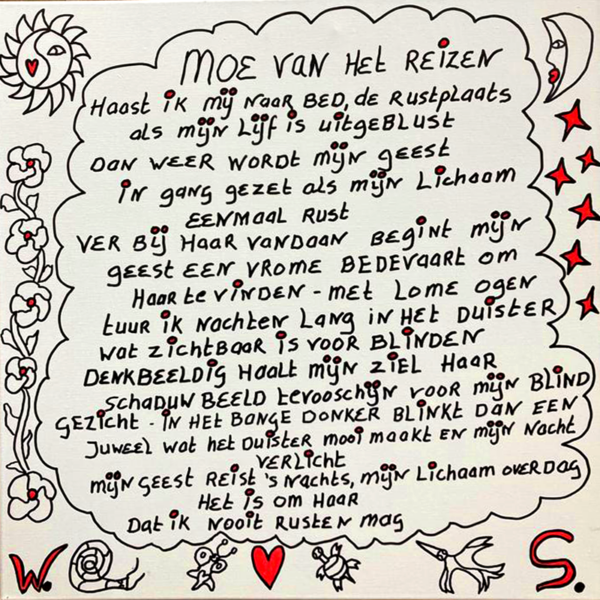 MOE VAN HET REIZEN
Haast ik mij naar BED, de Rustplaats
als mijn Lijf is uitgeBlust
Dan weer wordt mijn geest
in gang gezet als mijn Lichaam
eenmaal Rust
Ver Bij Haar vandaan Begint mijn
geest een vrome Bedevaart om
Haar te vinden - met Lome ogen
tuur ik nachten Lang in Het Duister
wat zichtbaar is voor Blinden
Denkbeeldig Haalt mijn ziel Haar
schaduw beeld tevooschijn voor mijn Blind
gezicht - in Het Bange Donker Blinkt Dan een
Juweel wat het Duister mooi maakt en mijn Nacht
verlicht
mijn geest Reist 's Nachts, mijn Lichaam overdag
Het is om Haar
Dat ik nooit Rusten mag
W. S.